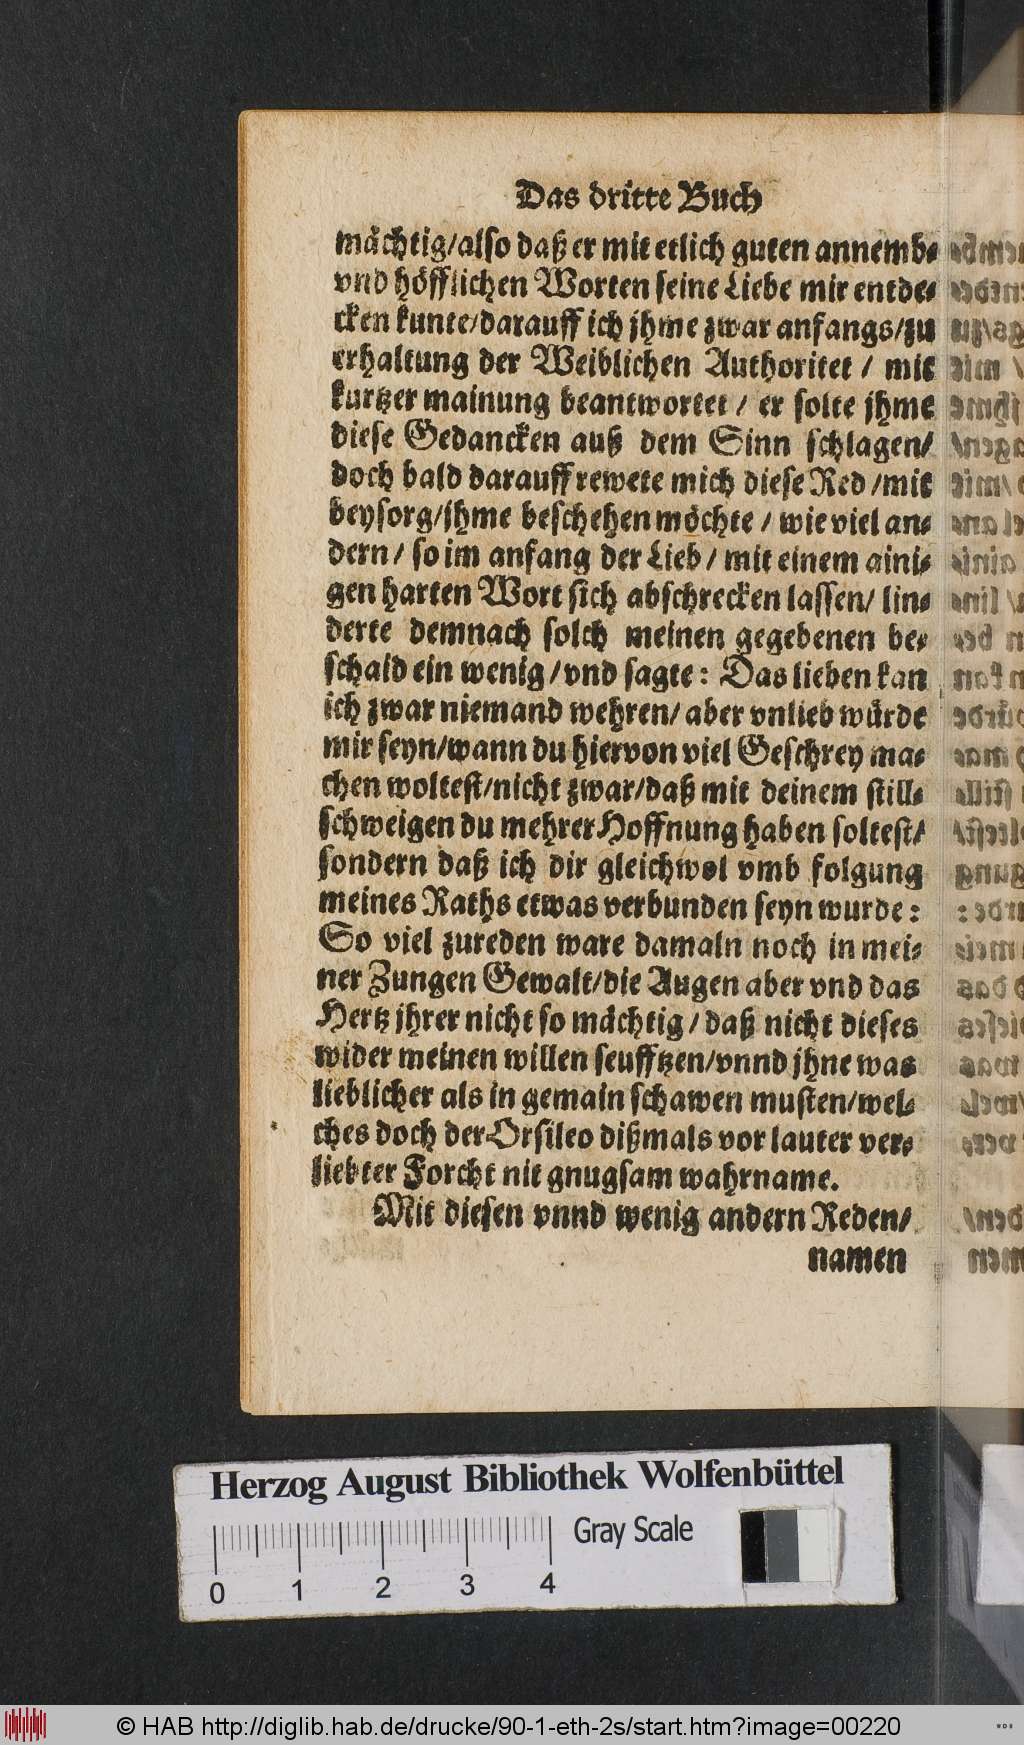 Das dritte Buch
mächtig/also daß er mit etlich guten annemb-
vnd höfflichen Worten seine Liebe mir entde-
cken kunte/darauff ich jhme zwar anfangs/zu
erhaltung der Weiblichen Authoritet / mit
kurtzer mainung beantwortet / er solte jhme
diese Gedancken auß dem Sinn schlagen/
doch bald darauff rewete mich diese Red /mit
beysorg/jhme beschehen möchte / wie viel an-
dern/ so im anfang der Lieb/ mit einem aini-
gen harten Wort sich abschrecken lassen/ lin-
derte demnach solch meinen gegebenen be-
schaid ein wenig/vnd sagte: Das lieben kan
ich zwar niemand wehren/ aber vnlieb würde
mir seyn/wann du hiervon viel Geschrey ma-
chen woltest/nicht zwar/daß mit deinem still-
schweigen du mehrer Hoffnung haben soltest/
sondern daß ich dir gleichwol vmb folgung
meines Raths etwas verbunden seyn wurde:
So viel zureden ware damaln noch in mei-
ner Zungen Gewalt/die Augen aber vnd das
Hertz jhrer nicht so mächtig / daß nicht dieses
wider meinen willen seufftzen/vnnd jhne was
lieblicher als in gemain schawen musten/wel-
ches doch der Orsileo dißmals vor lauter ver-
liebter Forcht nit gnugsam wahrname.
Mit diesen vnnd wenig andern Reden/
namen
Herzog August Bibliothek Wolfenbüttel
Gray Scale
0 1 2 3 4
© HAB http://diglib.hab.de/drucke/90-1-eth-2s/start.htm?image=00220